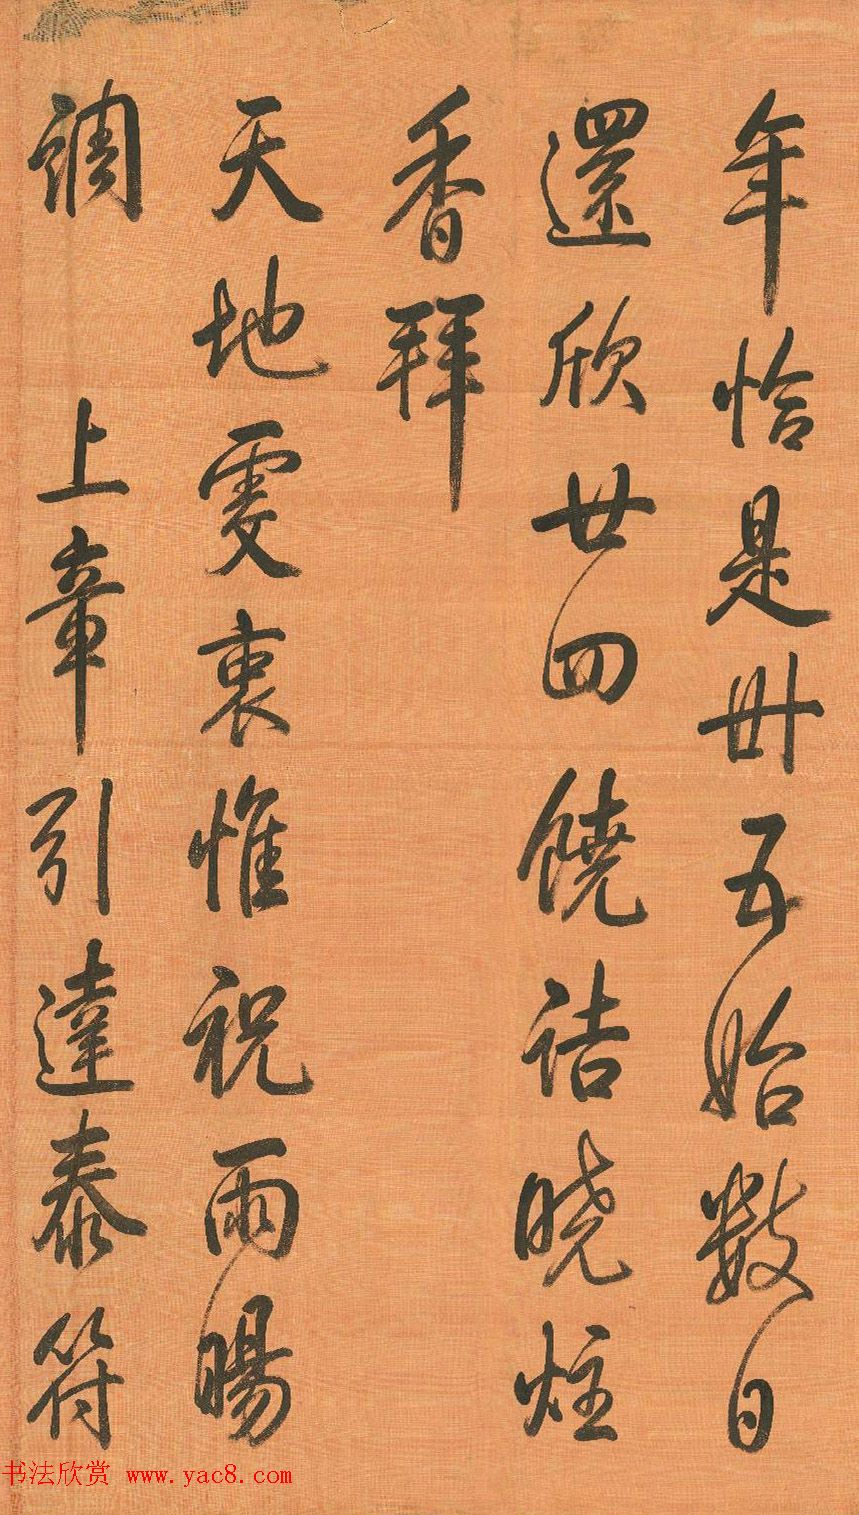 年恰是卌五始數日
還欣廿四饒詰曉炷
香拜
天地虔衷惟祝雨暘
調 上章引達泰符
书法欣赏 www.yac8.com